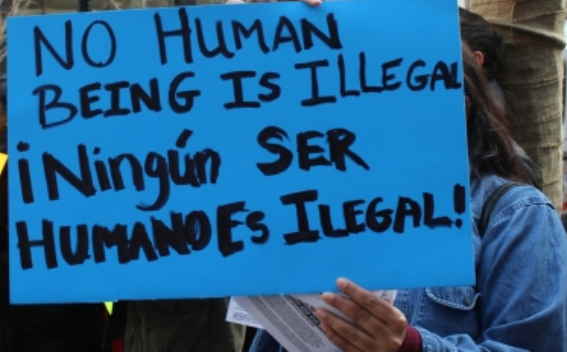 NO HUMAN
BEING IS ILLEGAL
¡Ningún SER
HUMANO ES ILEGAL!